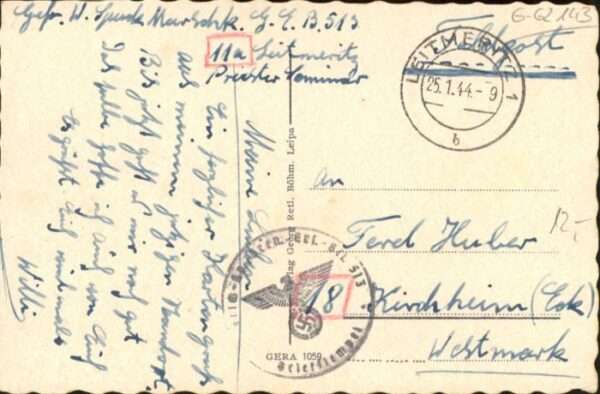 Gefr. W. Marschk. G. E. B. 513
11a Leitmeritz
Priester Seminar
Feldpost
G-Q 143
LEITMERITZ 1
25.1.44.-9
b
Meine Lieben
Ein herzlicher Kartengruß
aus meinem jetzigen Standort.
Bis jetzt geht es mir noch gut
Das selbe hoffe ich auch von Euch
Es grüßt Euch nochmals
Willi
Verlag Georg Retl. Böhm. Leipa
GERA 1059
An
Ferd Huber
12,-
18 Kirchheim (Eck)
Westmark
513
Briefstempel